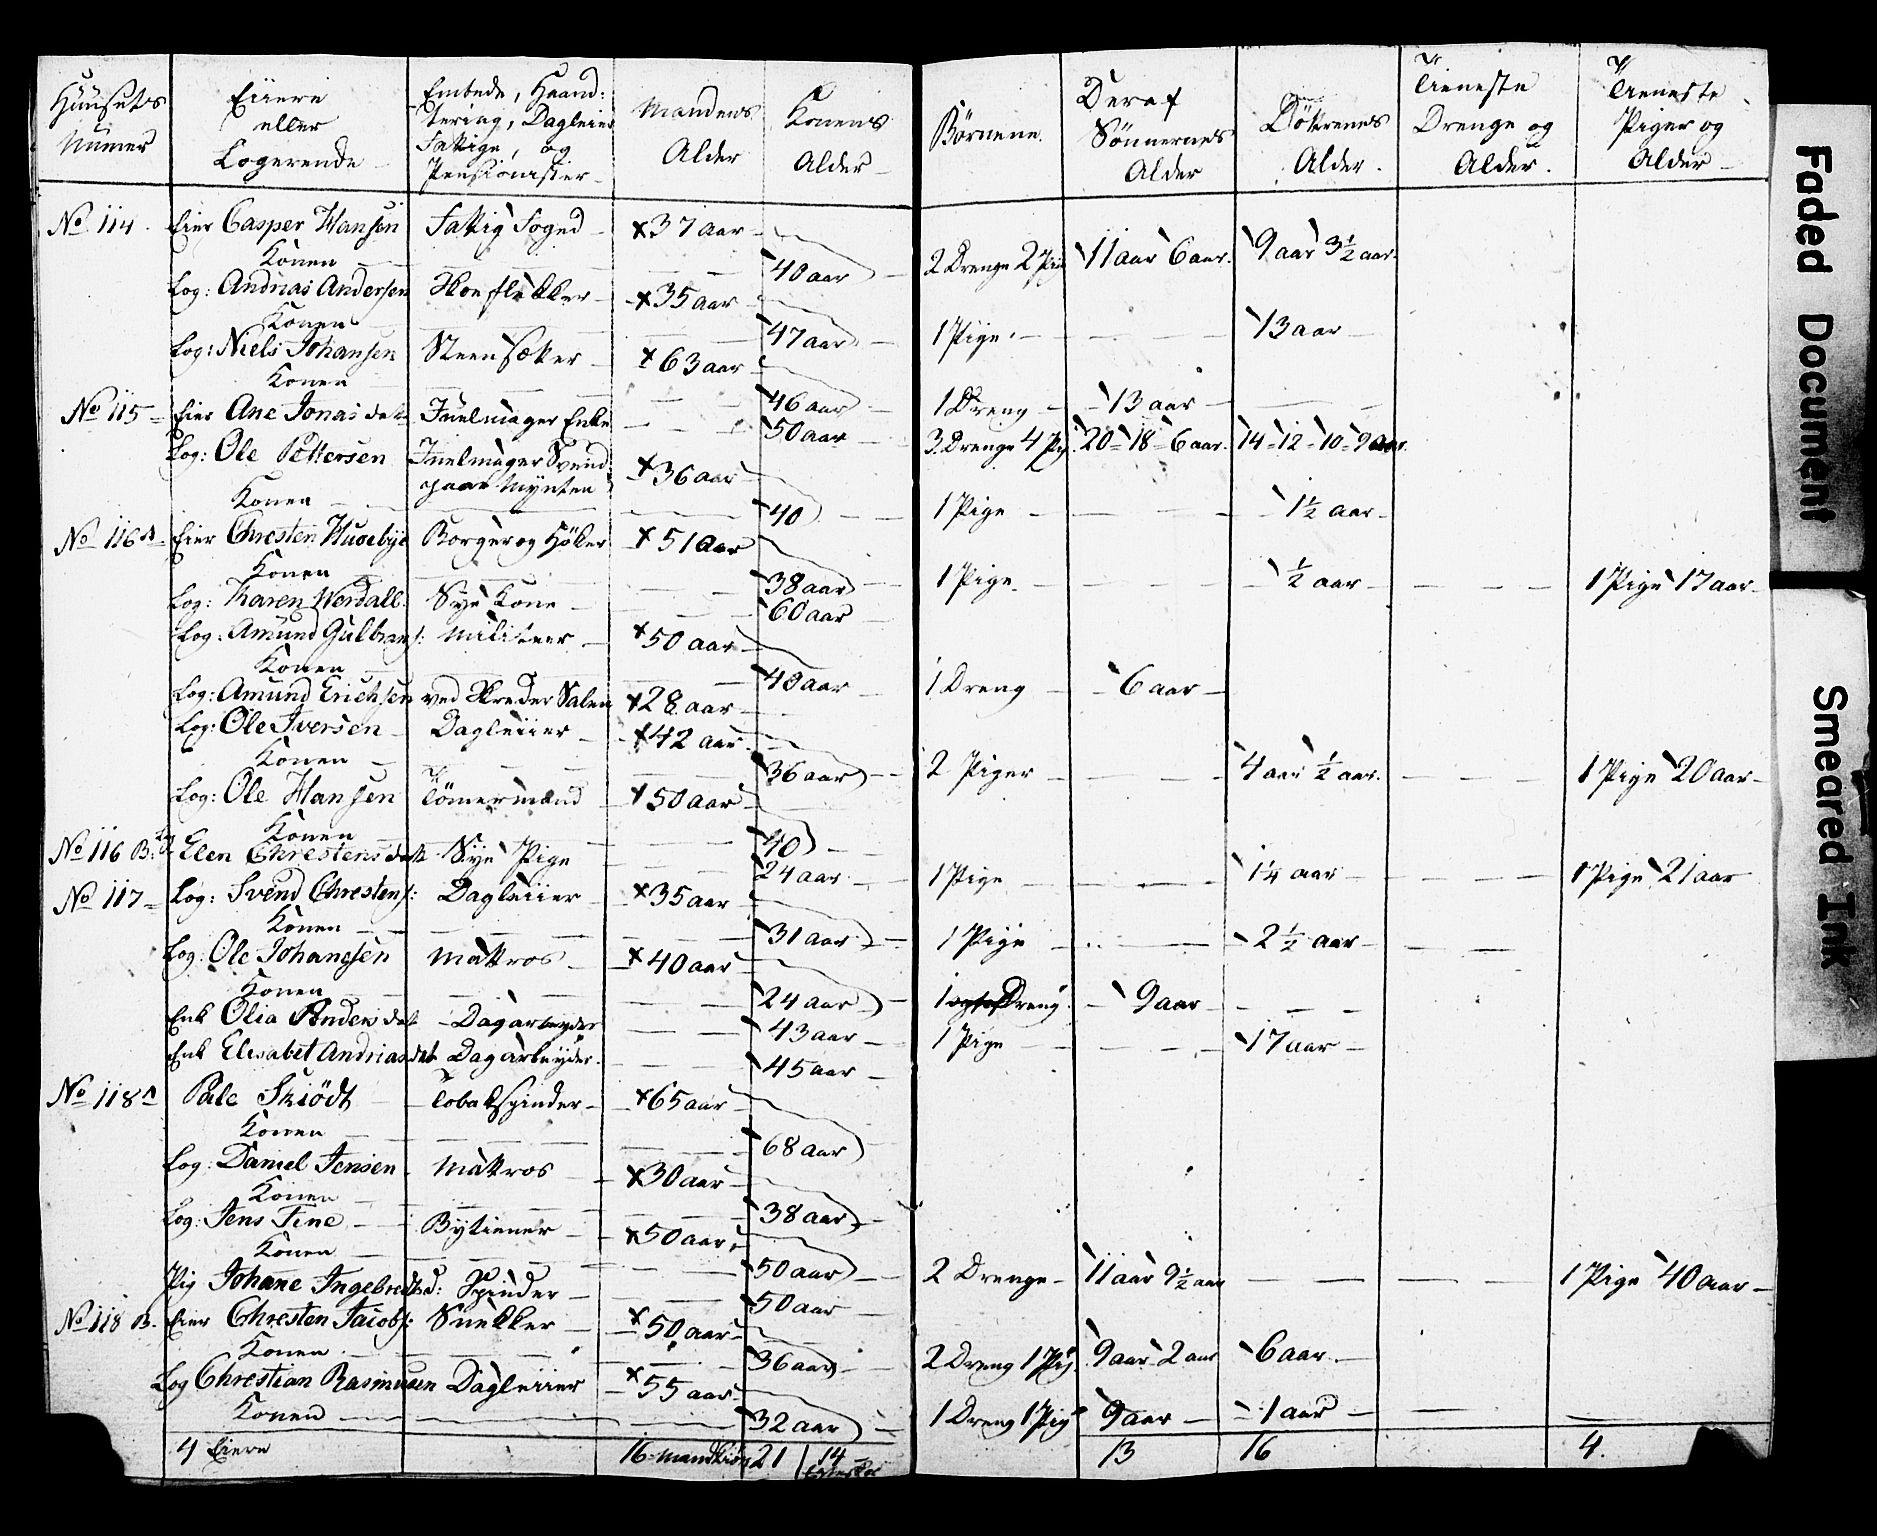 Huusets Numer | Eiere eller Logerende | Embede, Haandtering, Dagleier Fattige, og Pensionister | Mandens Alder | Konens Alder | Børnene | Deraf Sönnernes Alder | Döttrenes Alder | Tieneste Drenge og Alder | Tieneste Piger og Alder
No 114 Eier Casper Hansen Fattig Foged 37 aar
Konen 40 aar 2 Drenge 2 Pig 11 aar 6 aar 9 aar 3½ aar
Log: Andrias Andersen 35 aar
Konen 47 aar 1 Pige 13 aar
Log: Niels Johansen 63 aar
Konen 46 aar 1 Dreng 13 aar
No 115 Eier Ane Jonas dat Juelmager Enke 50 aar 3 Drenge 4 Pig 20 18 6 aar 14 12 10 9 aar
Log: Ole Pettersen Juelmager Svend paa Mynten 36 aar
Konen 40 1 Pige 1½ aar
No 116 A Eier Chresten Huseby Borger og Höker 51 aar
Konen 38 aar 1 Pige ½ aar 1 Pige 17 aar
Log: Karen Werdall Sye Kone 60 aar
Log: Amund Gulbrans: Militær 50 aar
Konen 40 aar 1 Dreng 6 aar
Log: Amund Erichsen ved Skreder Salen 28 aar
Log: Ole Iversen Dagleiier 42 aar
Konen 36 aar 2 Piger 4 aar ½ aar 1 Pige 20 aar
Log: Ole Hansen Tömermand 50 aar
Konen 40
No 116 B: Log Elen Chrestens dat Sye Pige 24 aar 1 Pige 1¼ aar 1 Pige 21 aar
No 117 Log: Svend Chrestens: Dagleiier 35 aar
Konen 31 aar 1 Pige 2½ aar
Log: Ole Johanesen Matros 40 aar
Konen 24 aar 1 Dreng 9 aar
Enk Olia Anders dat Dagarbeyder 43 aar 1 Pige 17 aar
Enk Elisabet Andrias dat Dagarbeyder 45 aar
No 118 A Pale Skiödt Tobakspinder 65 aar
Konen 68 aar
Log: Daniel Jensen Matros 30 aar
Konen 38 aar
Log: Jens Fine Bytiener 50 aar
Konen 50 aar 2 Drenge 11 aar 9½ aar 1 Pige 40 aar
Pig Johane Ingebrets d: Spinder 50 aar
No 118 B. Eier Chresten Jacobs: Snekker 50 aar
Konen 36 aar 2 Dreng 1 Pig 9 aar 2 aar 6 aar
Log Chrestian Rasmusen Dagleiier 55 aar
Konen 32 aar 1 Dreng 1 Pig 9 aar 1 aar
4 Eiere 16 Mandkiön 21 14 13 16 4.
Faded Document
Smeared Ink